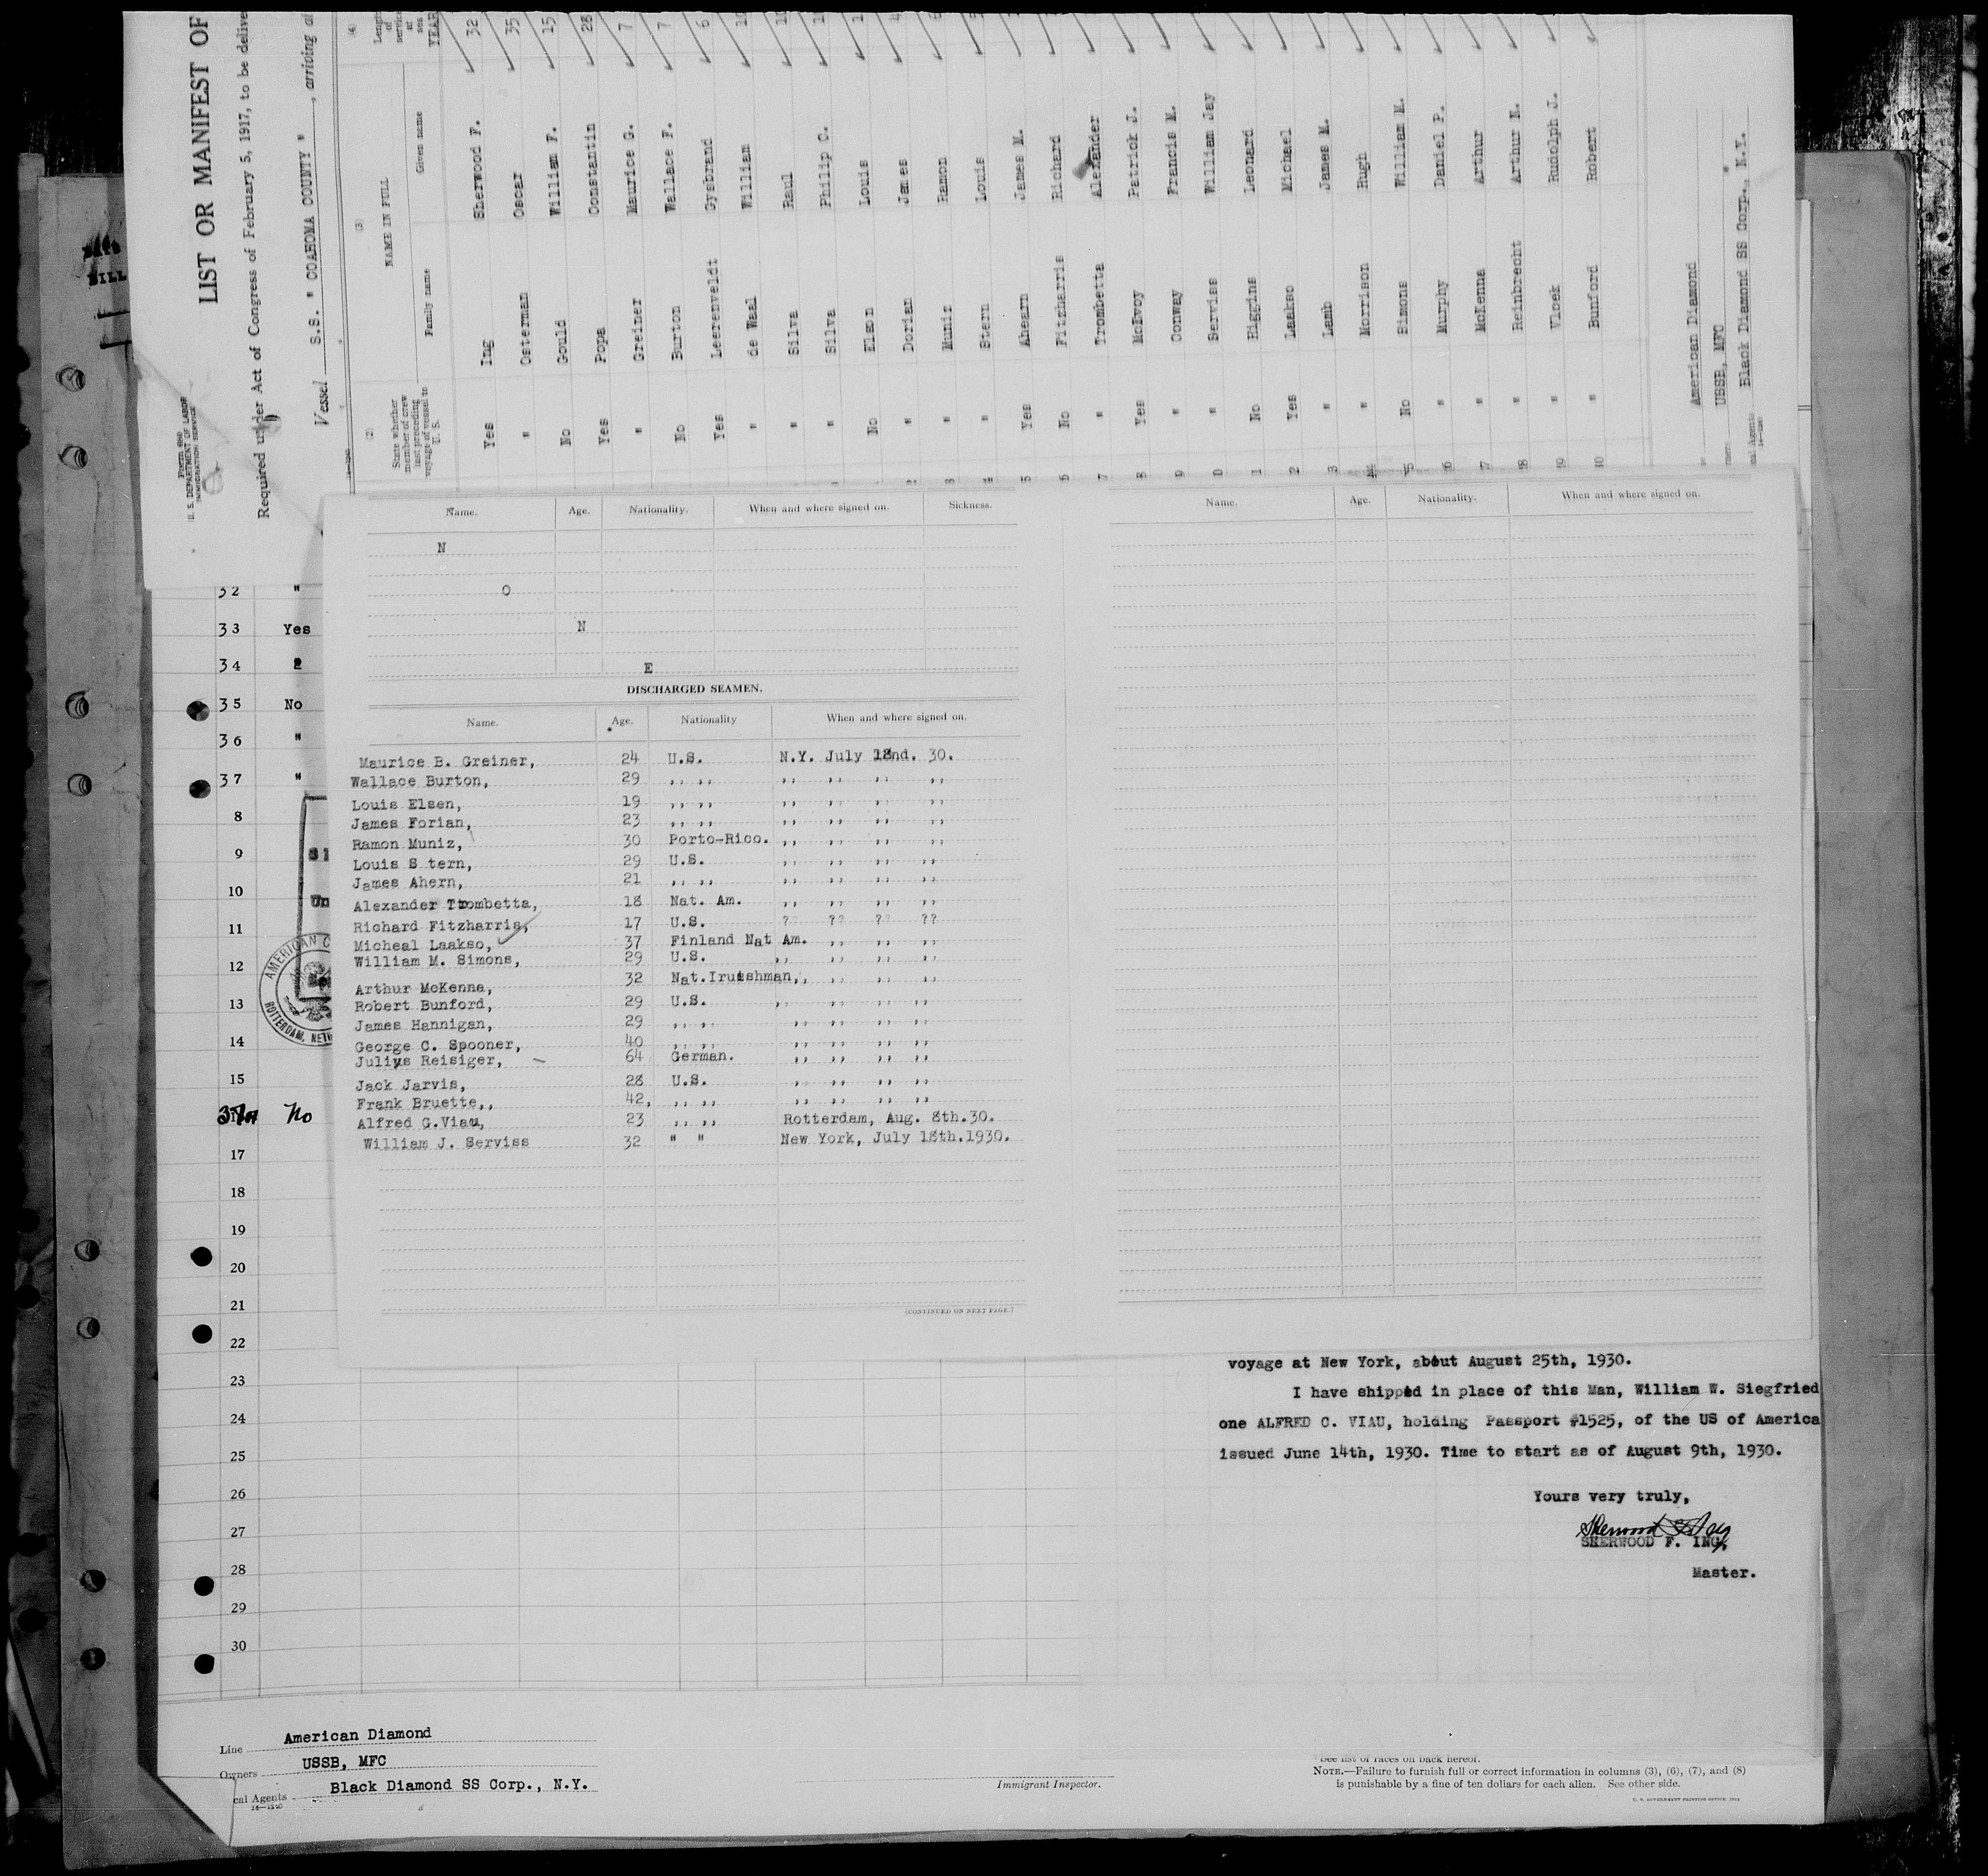 LIST OR MANIFEST OF
Required under Act of Congress of February 5, 1917, to be delive
Vessel S.S. " COAHOMA COUNTY ", arriving at
Form 680
U. S. DEPARTMENT OF LABOR
IMMIGRATION SERVICE
(2) (3) (4)
State whether member of crew last preceding voyage of vessel to U. S.
NAME IN FULL
Family name Given name
Length of service at sea
YEAR
Yes Ing Sherwood F. 32
" Osterman Oscar 35
No Gould William F. 15
Yes Popa Constantin 28
" Greiner Maurice G. 7
No Burton Wallace F. 7
Yes Leerenveldt Gysbrand 6
" de Waal William
" Silva Raul
" Silva Philip C.
No Elson Louis
" Dorian James
" Muniz Ramon
" Stern Louis
5 Yes Ahearn James M.
6 No Fitzharris Richard
7 " Trombetta Alexander
8 Yes McEvoy Patrick J.
9 " Conway Francis M.
0 " Serviss William Jay
1 No Higgins Leonard
2 Yes Laakso Michael
3 " Lamb James M.
" Morrison Hugh
5 No Simons William M.
6 " Murphy Daniel P.
7 " McKenna Arthur
8 " Reinbrecht Arthur K.
9 " Vlcek Rudolph J.
0 " Bunford Robert
American Diamond
USSB, MFC
Black Diamond SS Corp., N.Y.
Name. Age. Nationality. When and where signed on. Sickness.
N
O
N
E
DISCHARGED SEAMEN.
Name. Age. Nationality When and where signed on.
Maurice B. Greiner, 24 U.S. N.Y. July 18nd. 30.
Wallace Burton, 29 ,, ,, ,, ,, ,, ,,
Louis Elsen, 19 ,, ,, ,, ,, ,, ,,
James Forian, 23 ,, ,, ,, ,, ,, ,,
Ramon Muniz, 30 Porto-Rico. ,, ,, ,, ,,
Louis S tern, 29 U.S. ,, ,, ,, ,,
James Ahern, 21 ,, ,, ,, ,, ,, ,,
Alexander Trombetta, 18 Nat. Am. ,, ,, ,, ,,
Richard Fitzharris, 17 U.S. ? ?? ?? ??
Micheal Laakso, 37 Finland Nat Am. ,, ,, ,,
William M. Simons, 29 U.S. ,, ,, ,, ,,
Arthur McKenna, 32 Nat.Iruishman,, ,, ,, ,,
Robert Bunford, 29 U.S. ,, ,, ,, ,,
James Hannigan, 29 ,, ,, ,, ,, ,, ,,
George C. Spooner, 40 ,, ,, ,, ,, ,, ,,
Julius Reisiger, 64 German. ,, ,, ,, ,,
Jack Jarvis, 28 U.S. ,, ,, ,, ,,
Frank Bruette,, 42, ,, ,, ,, ,, ,, ,,
Alfred G.Viau, 23 ,, ,, Rotterdam, Aug. 8th.30.
William J. Serviss 32 " " New York, July 18th.1930.
[CONTINUED ON NEXT PAGE.]
Name. Age. Nationality. When and where signed on.
32 "
33 Yes
34 "
35 No
36 "
37 "
8
9
10
11
12
13
14
15
37A No
17
18
19
20
21
22
23
24
25
26
27
28
29
30
AMERICAN C
ROTTERDAM, NETH
voyage at New York, about August 25th, 1930.
I have shipped in place of this Man, William W. Siegfried
one ALFRED C. VIAU, holding Passport #1525, of the US of America
issued June 14th, 1930. Time to start as of August 9th, 1930.
Yours very truly,
Sherwood F. Ing
SHERWOOD F. ING,
Master.
Line American Diamond
Owners USSB, MFC
cal Agents Black Diamond SS Corp., N.Y.
14—1240
Immigrant Inspector.
See list of races on back hereof.
NOTE.—Failure to furnish full or correct information in columns (3), (6), (7), and (8)
is punishable by a fine of ten dollars for each alien. See other side.